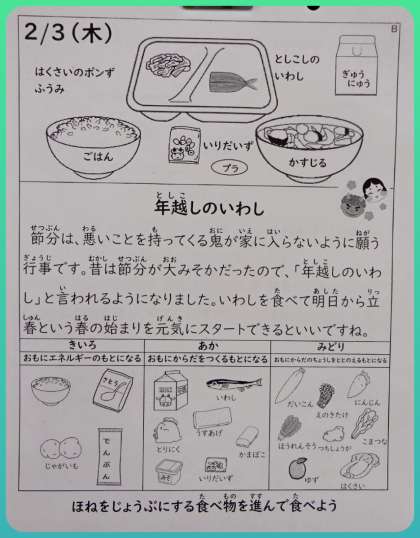 2/3(木)
B
はくさいのポンず
ふうみ
としこしの
いわし
ぎゅう
にゅう
ごはん
いりだいず
プラ
かすじる
年越しのいわし
節分は、悪いことを持ってくる鬼が家に入らないように願う
行事です。昔は節分が大みそかだったので、「年越しのいわ
し」と言われるようになりました。いわしを食べて明日から立
春という春の始まりを元気にスタートできるといいですね。
きいろ
あか
みどり
おもにエネルギーのもとになる
おもにからだをつくるもとになる
おもにからだのちょうしをととのえるもとになる
さとう
じゃがいも
でんぷん
いわし
とりにく
うすあげ
かまぼこ
みそ
いりだいず
だいこん
えのきたけ
にんじん
ほうれんそう
しょうが
こまつな
ゆず
はくさい
ほねをじょうぶにする食べ物を進んで食べよう